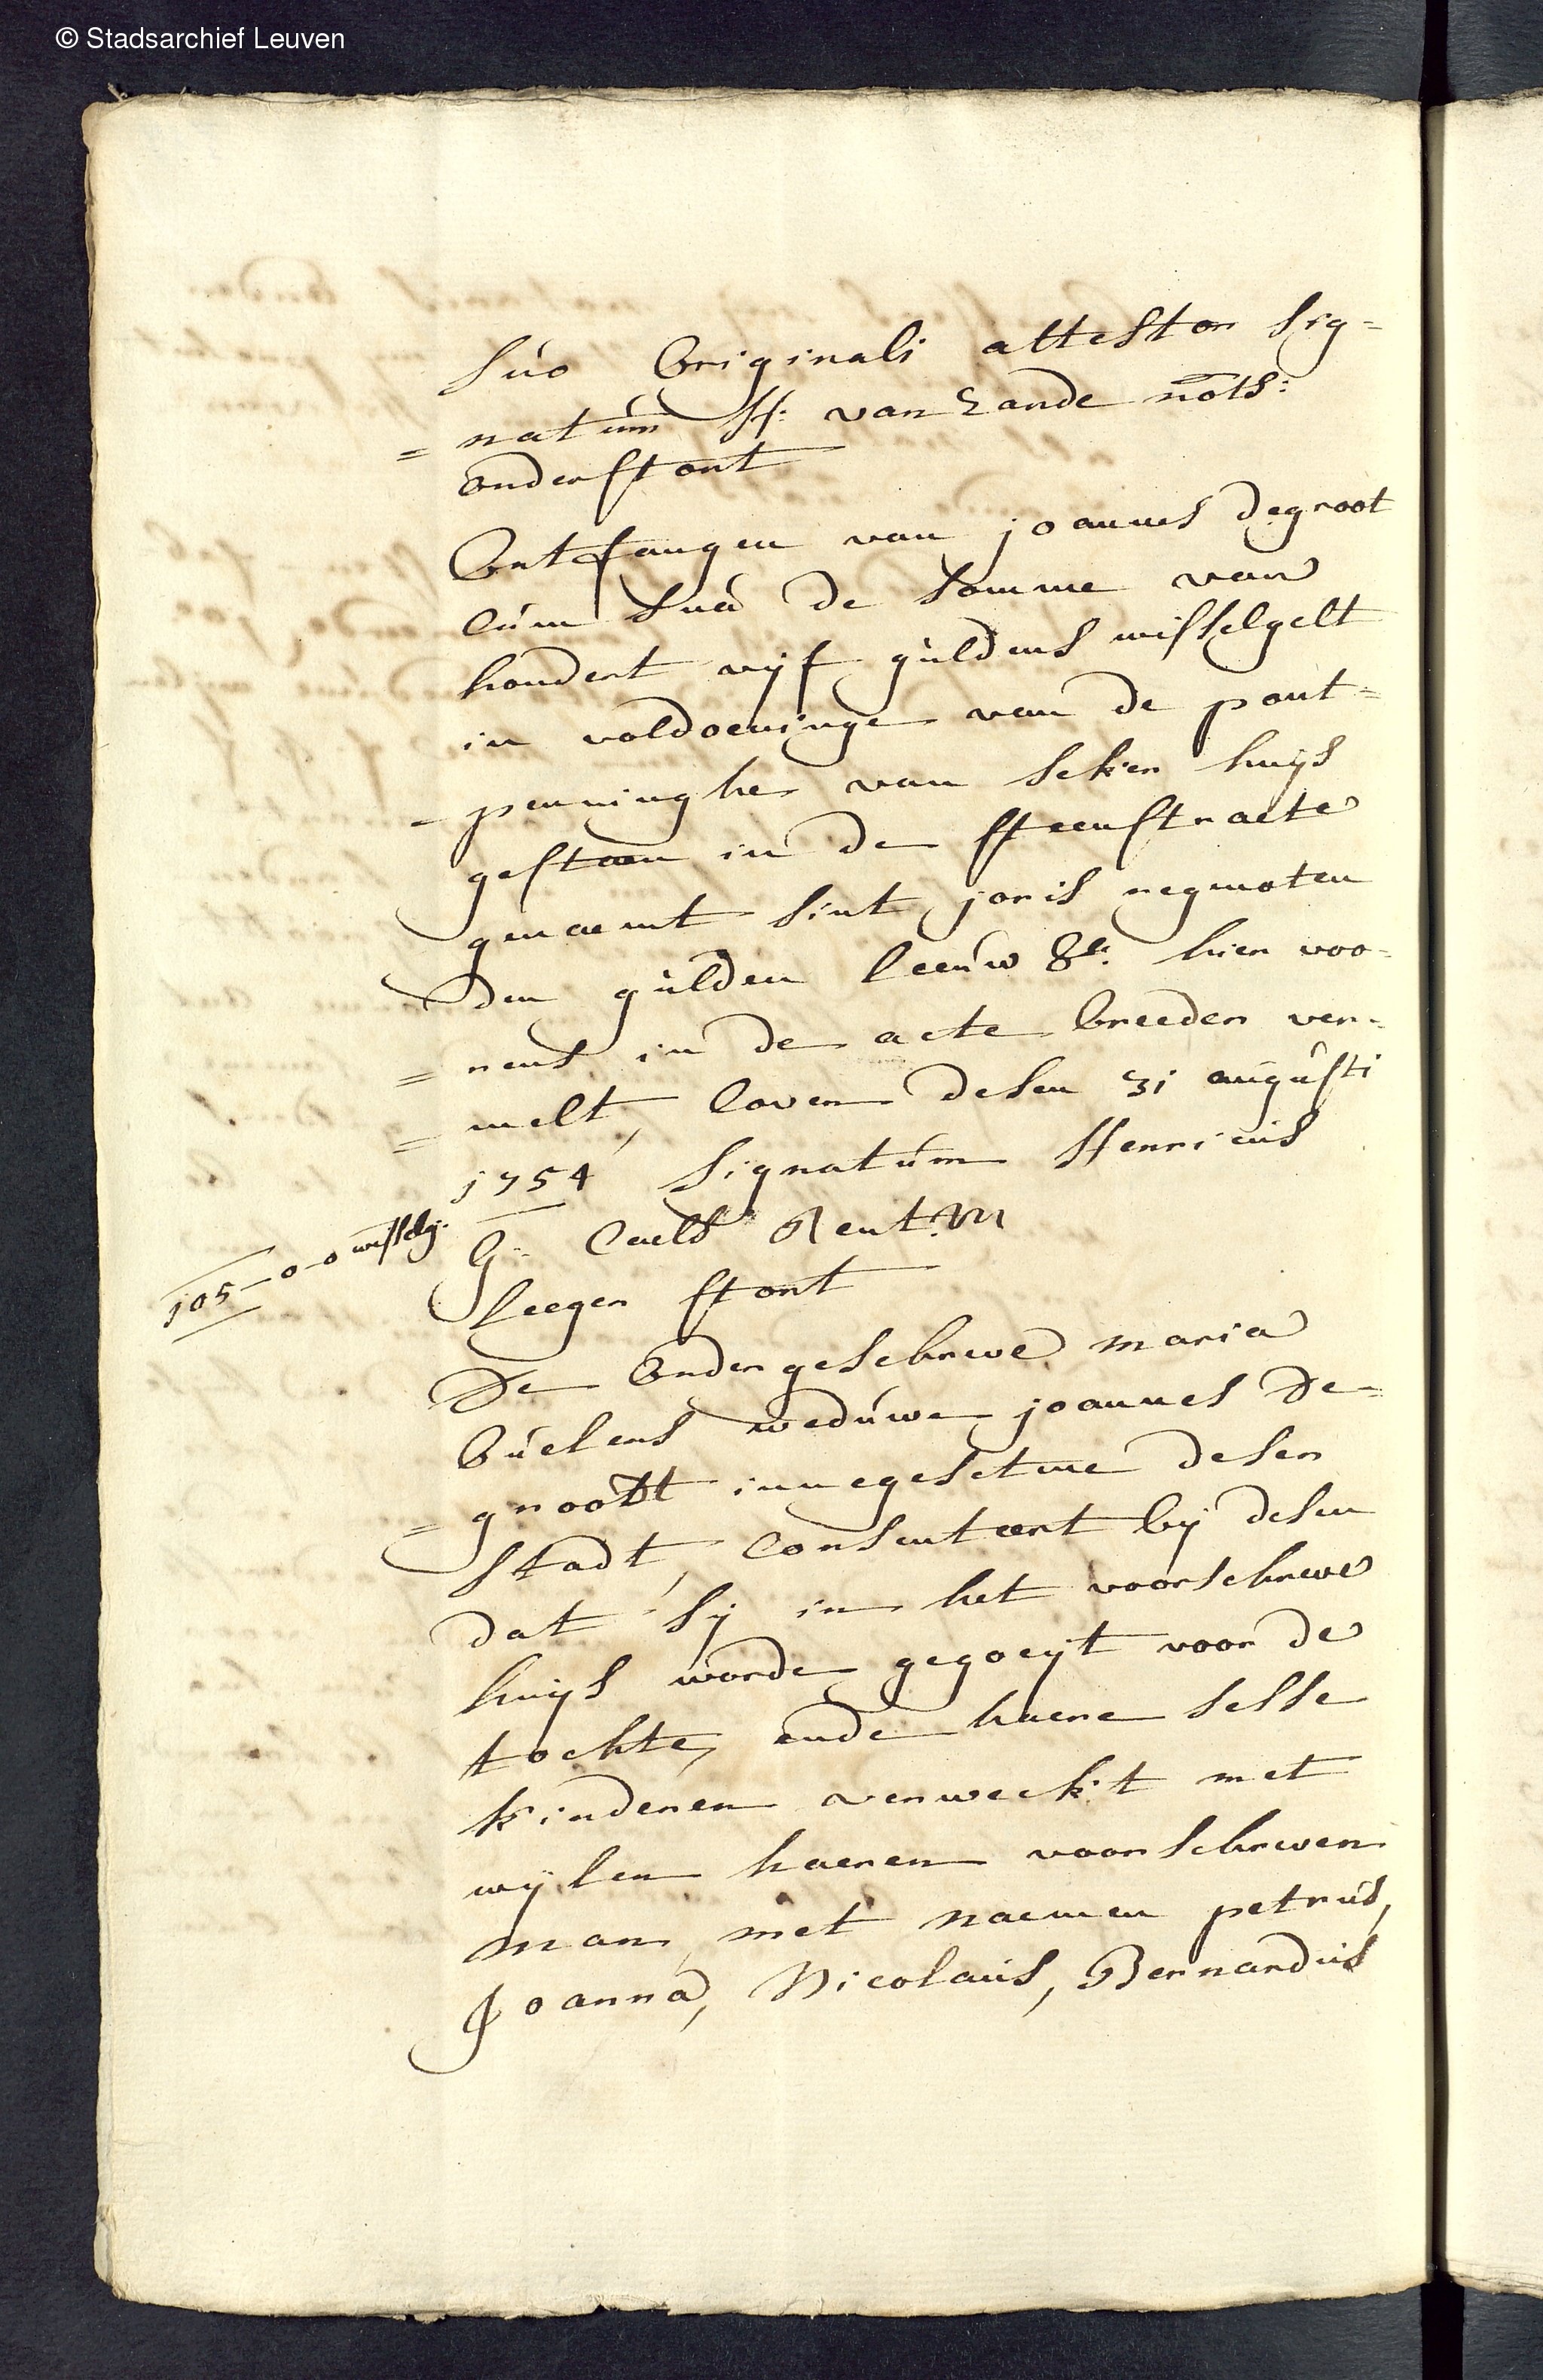 © Stadsarchief Leuven
suo Originali attestor sig=
=natum H: van Zande nots:
onderstont
Ontfangen van joannes degroot
cum sua de somme van
hondert vijf guldens wisselgelt
in voldoeninge van de pont=
-penninghe van seker huijs
gestaen in de steenstraete
genaemt sint joris regenoten
den gulden leeuw &c: hier voo=
=rens in de acte breeder ver=
=melt, loven desen 31 augusti
1754 signatum Henricus
105-0-0 wisselg:
G: Caels Rentm
leeger stont
De ondergeschreve maria
buelens weduwe joannes de=
=groodt innegesetene deser
stadt, consenteert bij desen
dat sij in het voorschreve
huijs worde gegoeijt voor de
tochte, ende haere sesse
kinderen verweckt met
wijlen haeren voorschreven
man, met naemen petrus,
Joanna, Nicolaus, Bernardus